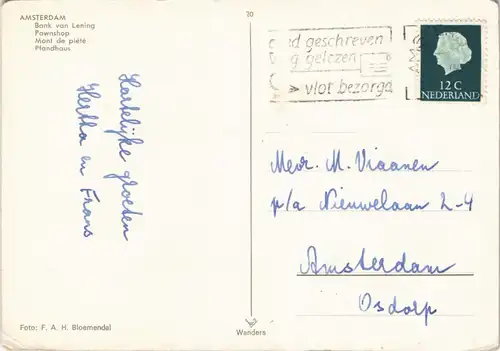 AMSTERDAM
Bank van Lening
Pawnshop
Mont de piété
Pfandhaus
20
geschreven
gelezen
vlot bezorgd
12 C
NEDERLAND
Hartelijke groeten
Hertha en Frans
Mevr. M. Viaanen
p/a Nieuwelaan 2-4
Amsterdam
Osdorp
Foto: F. A. H. Bloemendal
Wanders